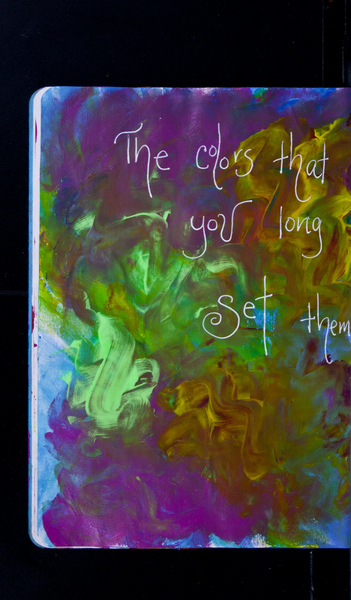 The colors that
you long
Set them